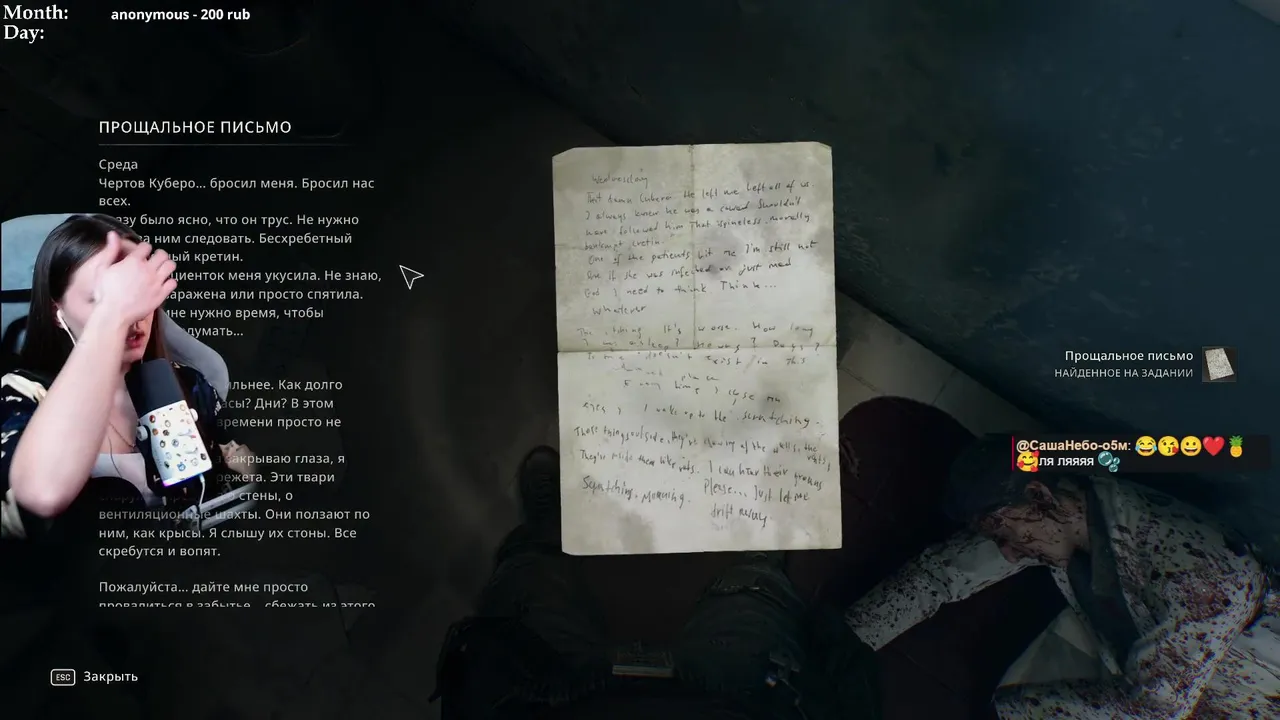 Month:
Day:
anonymous - 200 rub
ПРОЩАЛЬНОЕ ПИСЬМО
Среда
Чертов Куберо... бросил меня. Бросил нас
всех.
было ясно, что он трус. Не нужно
ним следовать. Бесхребетный
кретин.
меня укусила. Не знаю,
или просто спятила.
нужно время, чтобы
Как долго
Дни? В этом
просто не
закрываю глаза, я
Эти твари
стены, о
вентиляционные шахты. Они ползают по
ним, как крысы. Я слышу их стоны. Все
скребутся и вопят.
Пожалуйста... дайте мне просто
провалиться в забытье... сбежать из этого
ESC Закрыть
Wednesday
That damn Cubero. He left me. Left all of us.
I always knew he was a coward. Shouldn't
have followed him. That spineless, morally
bankrupt cretin.
One of the patients bit me. I'm still not
if she was infected or just mad
God I need to think. Think...
Whatever
The itching. It's worse. How long
I was asleep? Hours? Days?
Time doesn't exist in this
place
time I close my
eyes, I wake up to the scratching.
Those things outside, they're gnawing at the walls, the
They're inside them like rats. I can hear their groans
Scratching, moaning. Please... Just let me
drift away.
Прощальное письмо
НАЙДЕННОЕ НА ЗАДАНИИ
@СашаНебо-о5м: 😂😘😀❤️🍍
🥰ля ляяяя🫧